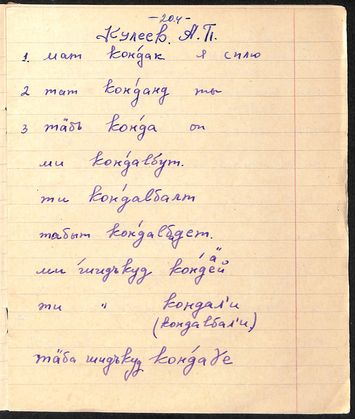 -204-
Кулеев. А.П.
1. мат кон́дак я сплю
2 тат кон́данд ты
3 тӓбъ кон́да он
ми кон́далбут.
ти кон́далбалт
табыт кон́далбадет.
ми шидъкуд кон́дей ӓ
ти " кондал'и
(кондалбал'и)
тӓба шидъкуд кон́даɣе